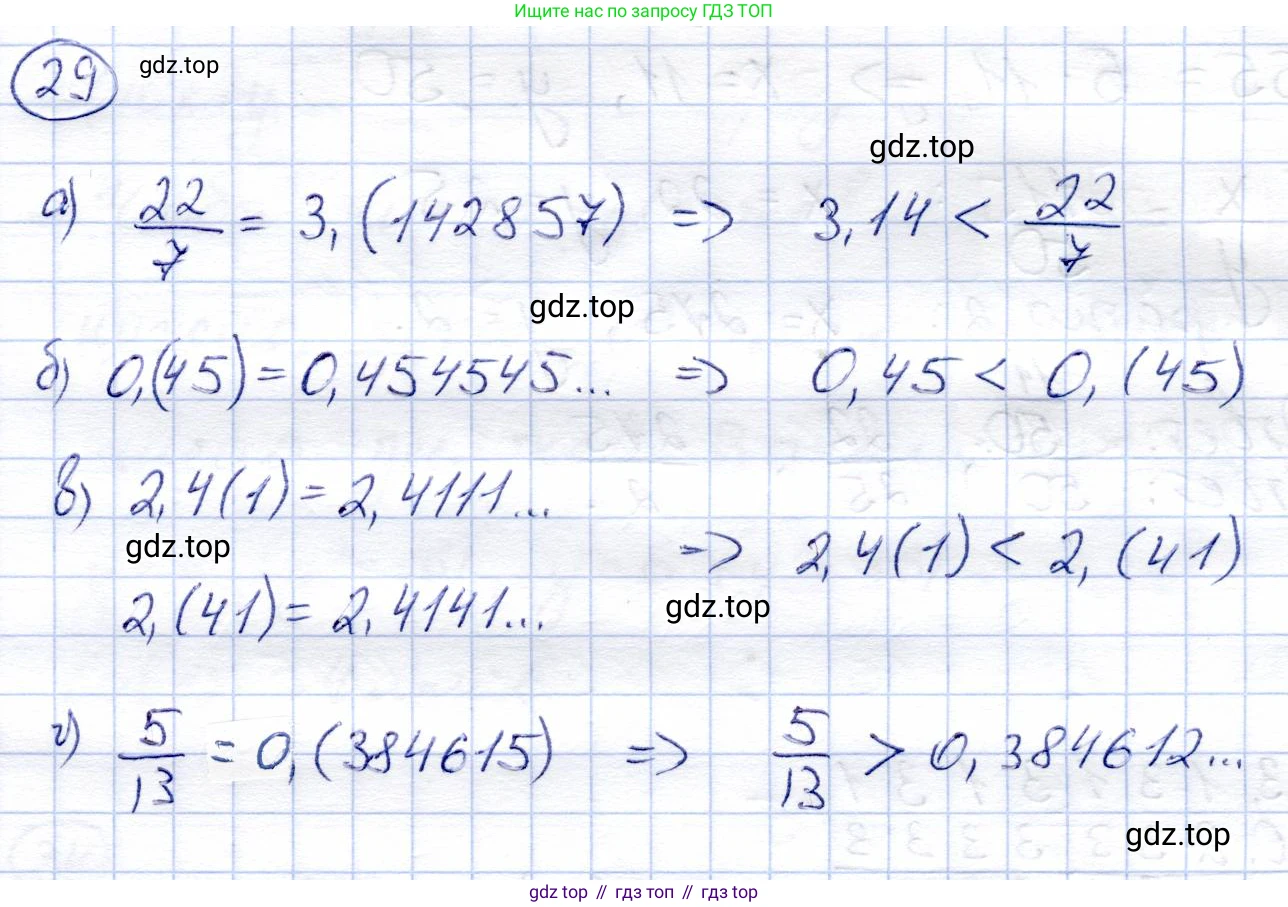 Ищите нас по запросу ГДЗ ТОП
29 gdz.top
gdz.top
а) 22/7 = 3,(142857) => 3,14 < 22/7
gdz.top
б) 0,(45) = 0,454545... => 0,45 < 0,(45)
в) 2,4(1) = 2,4111...
gdz.top
=> 2,4(1) < 2,(41)
2,(41) = 2,4141...
gdz.top
г) 5/13 = 0,(384615) => 5/13 > 0,384612...
gdz.top
gdz top // гдз топ // гдз top